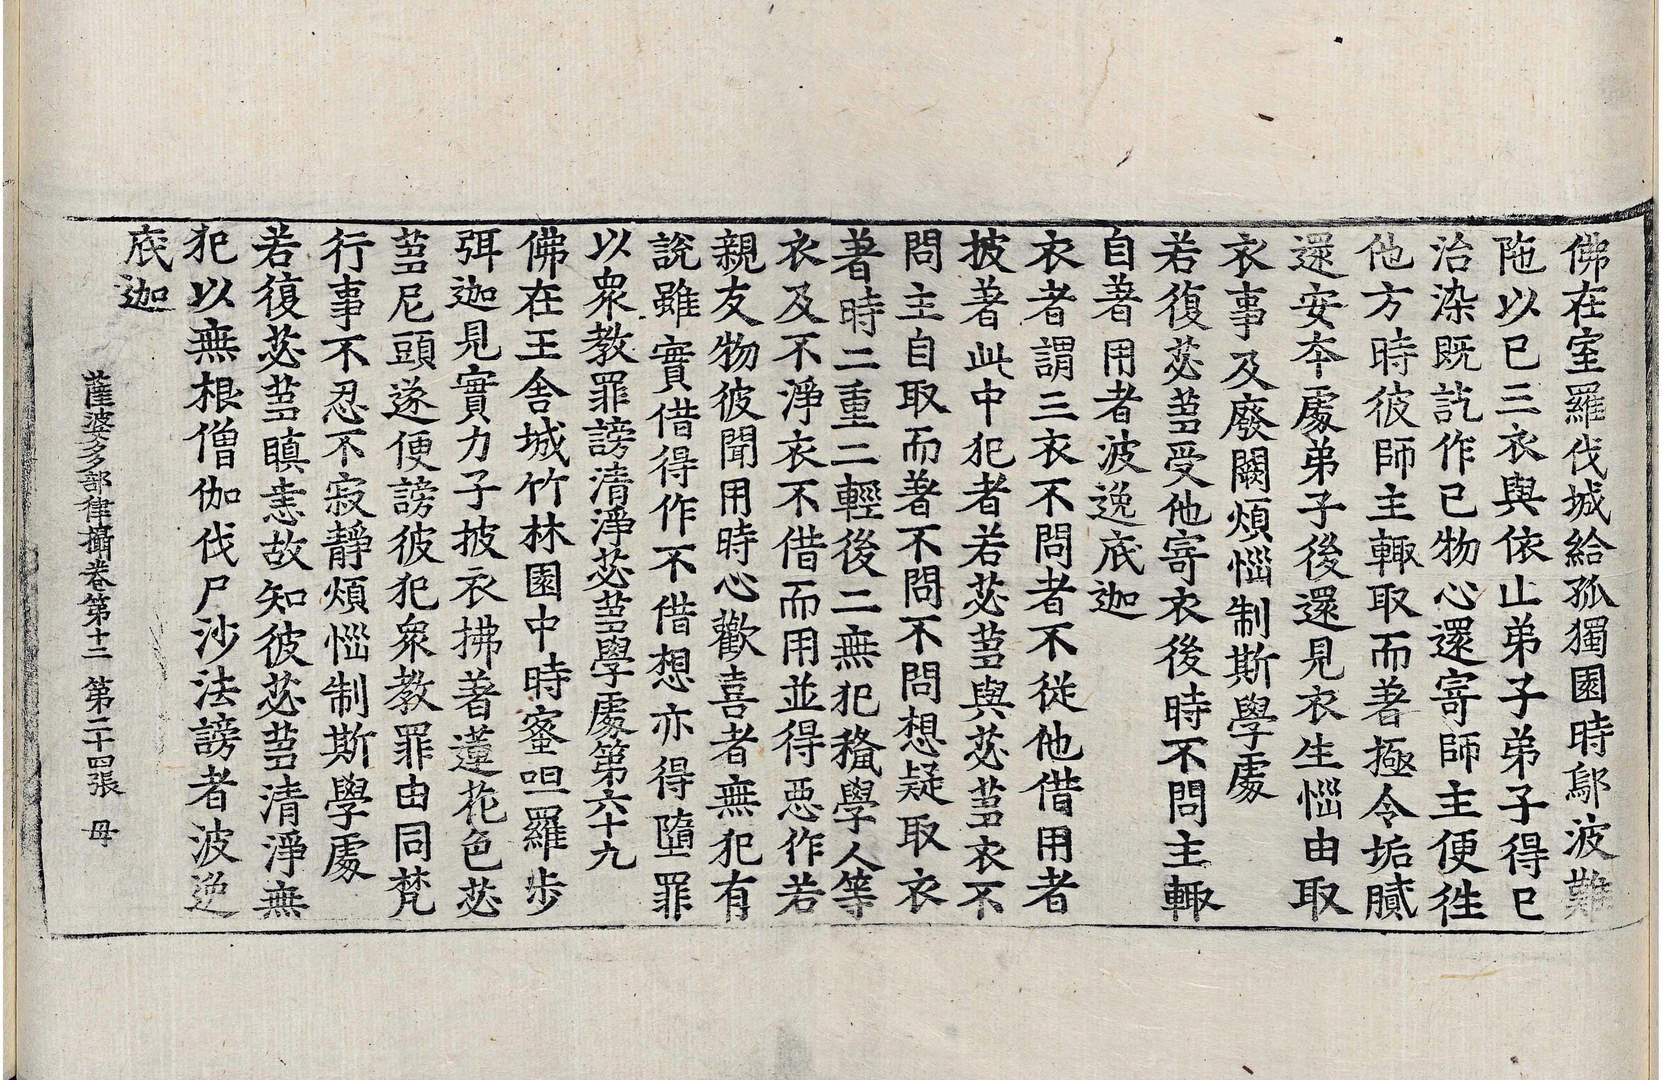 佛在室羅伐城給孤獨園時鄔波難
陁以已三衣與依止弟子弟子得已
治染既訖作已物心還寄師主便徃
他方時彼師主輙取而著極令垢膩
還安夲處弟子後還見衣生惱由取
衣事及廢闕煩惱制斯學處
若復苾芻受他寄衣後時不問主輙
自著用者波逸底迦
衣者謂三衣不問者不從他借用者
披著此中犯者若苾芻與苾芻衣不
問主自取而著不問不問想疑取衣
著時二重二輕後二無犯授學人等
衣及不淨衣不借而用並得惡作若
親友物彼聞用時心歡喜者無犯有
說雖實借得作不借想亦得墮罪
以衆教罪謗清淨苾芻學處第六十九
佛在王舍城竹林園中時蜜呾羅步
弭迦見實力子披衣拂著蓮花色苾
芻尼頭遂便謗彼犯衆教罪由同梵
行事不忍不寂靜煩惱制斯學處
若復苾芻瞋恚故知彼苾芻清淨無
犯以無根僧伽伐尸沙法謗者波逸
底迦
薩婆多部律攝卷第十二 第二十四張 母